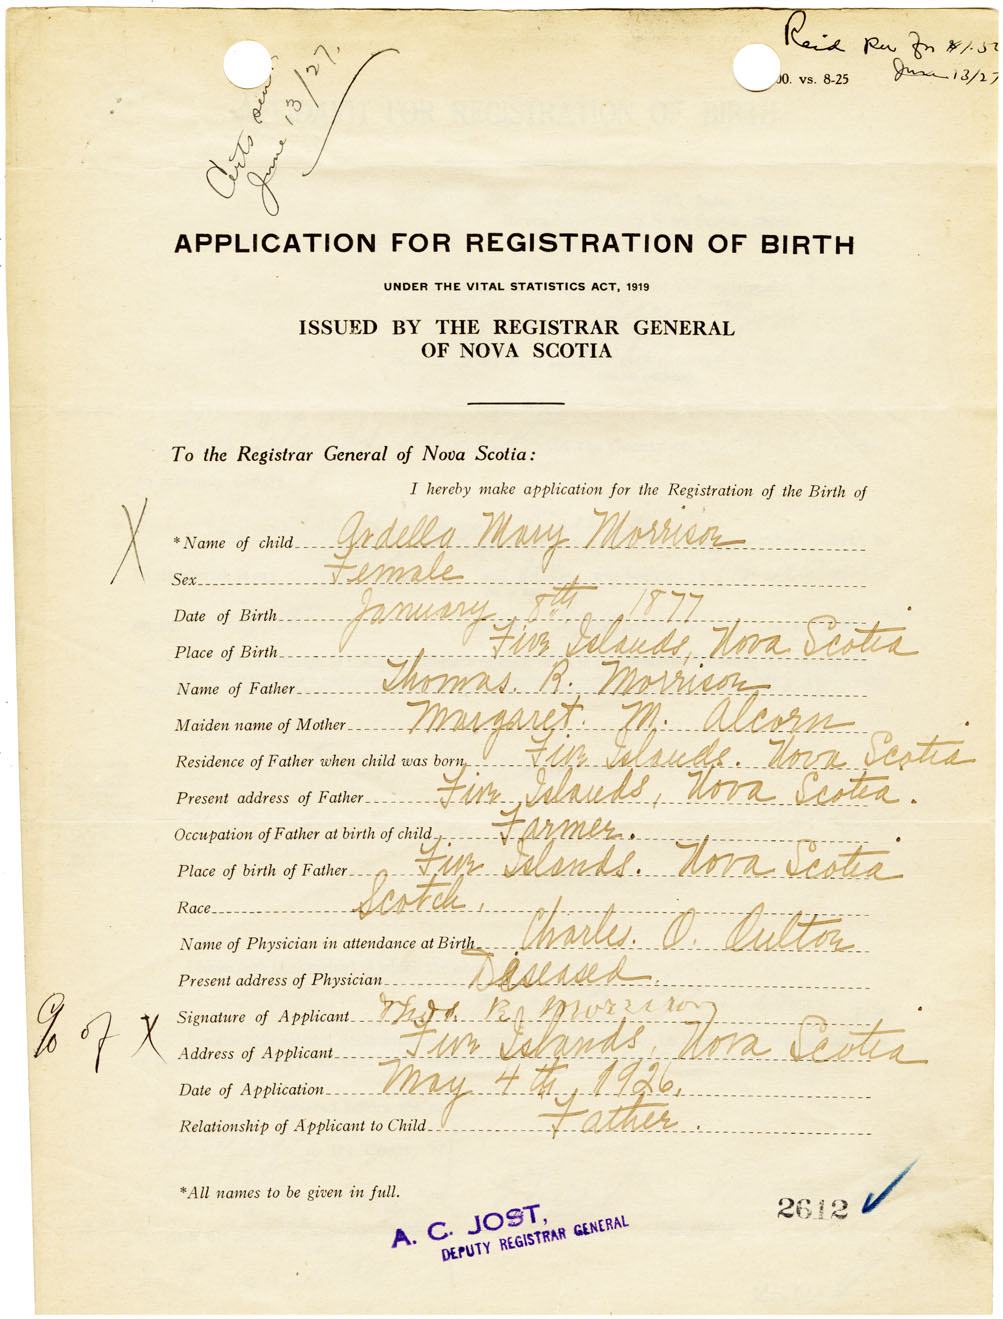 Reid Rev For $1.50
June 13/27
00. vs. 8-25
Certs sent
June 13/27.
APPLICATION FOR REGISTRATION OF BIRTH
UNDER THE VITAL STATISTICS ACT, 1919
ISSUED BY THE REGISTRAR GENERAL
OF NOVA SCOTIA
To the Registrar General of Nova Scotia:
I hereby make application for the Registration of the Birth of
X *Name of child Ardella Mary Morrison
Sex Female
Date of Birth January 8th 1877
Place of Birth Five Islands, Nova Scotia
Name of Father Thomas. R. Morrison
Maiden name of Mother Margaret. M. Alcorn
Residence of Father when child was born Five Islands. Nova Scotia
Present address of Father Five Islands, Nova Scotia.
Occupation of Father at birth of child Farmer.
Place of birth of Father Five Islands. Nova Scotia
Race Scotch.
Name of Physician in attendance at Birth Charles. O. Oulton
Present address of Physician Diseased
Signature of Applicant Thos. R Morrison
% of X Address of Applicant Five Islands, Nova Scotia
Date of Application May 4th, 1926.
Relationship of Applicant to Child Father.
*All names to be given in full.
2612
A. C. JOST,
DEPUTY REGISTRAR GENERAL